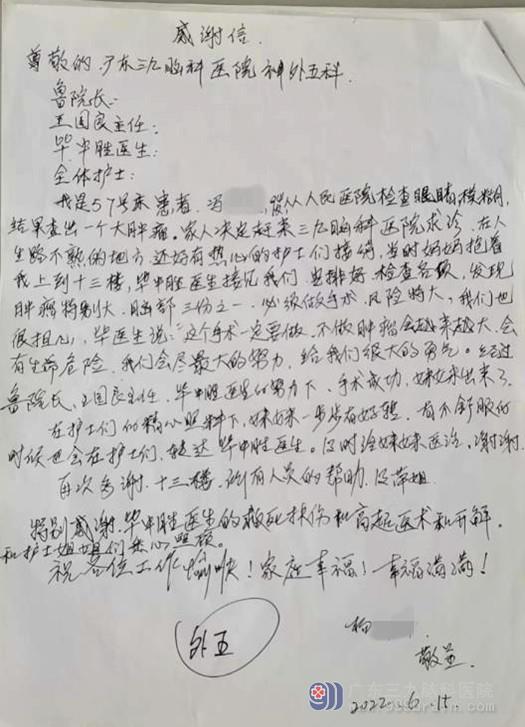 感谢信.
尊敬的广东三九脑科医院神外五科.
鲁院长:
王国良主任:
毕中胜医生:
全体护士:
我是57号床患者.冯 从人民医院检查眼睛模糊,
结果查出一个大肿瘤。家人决定赶来三九脑科医院求诊,在人
生路不熟的地方还好有热心的护士们接待,当时妈妈抱着
我上到十三楼,毕中胜医生接见我们,安排好检查各级,发现
肿瘤特别大,脑部三份之一,必须做手术,风险特大,我们也
很担心,毕医生说:"这个手术一定要做,不做肿瘤会越来越大,会
有生命危险,我们会尽最大的努力,给我们很大的勇气。经过
鲁院长、王国良主任,毕中胜医生的努力下,手术成功,妹妹出来了,
在护士们的精心照料下,妹妹一步步有好转,有不舒服的
时候也会在护士们,转达毕中胜医生。及时给妹妹医治,谢谢.
再次多谢.十三楼.所有人员的帮助及萍姐
特别感谢.毕中胜医生的救死扶伤和高超医术和开解.
和护士姐姐们热心照顾。
祝各位工作愉快!家庭幸福!幸福满满!
外五
杨
敬呈
2022.6.15.
广东三九脑科医院
999brain.com